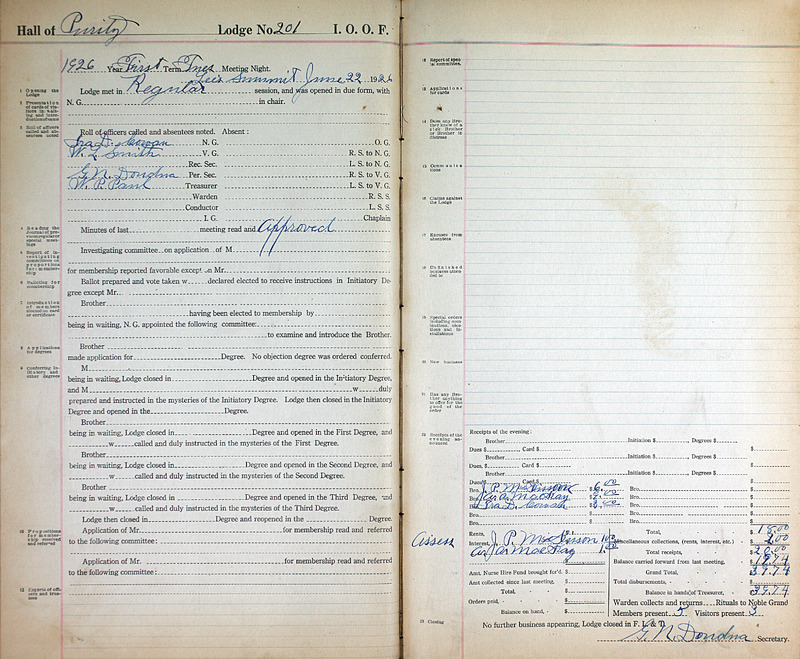 Hall of Purity Lodge No. 201 I. O. O. F.
1926 Year First Term Tues Meeting Night.
Lee's Summit June 22 1926
1 Opening the Lodge
Lodge met in Regular session, and was opened in due form, with
N. G. in chair.
Roll of officers called and absentees noted. Absent:
Ira D. Cowan N. G. O. G.
W. L. Smith V. G. R. S. to N. G.
Rec. Sec. L. S. to N. G.
G. N. Dondna Per. Sec. R. S. to V. G.
W. P. Paul Treasurer L. S. to V. G.
Warden R. S. S.
Conductor L. S. S.
I. G. Chaplain
Minutes of last meeting read and Approved
Investigating committee on application of M
for membership reported favorable except on Mr.
Ballot prepared and vote taken w declared elected to receive instructions in Initiatory De-
gree except Mr.
Brother
having been elected to membership by
being in waiting, N. G. appointed the following committee:
to examine and introduce the Brother.
8 Applications for degrees
Brother
made application for Degree. No objection degree was ordered conferred.
M
being in waiting, Lodge closed in Degree and opened in the Initiatory Degree,
and M w duly
prepared and instructed in the mysteries of the Initiatory Degree. Lodge then closed in the Initiatory
Degree and opened in the Degree.
Brother
being in waiting, Lodge closed in Degree and opened in the First Degree, and
w called and duly instructed in the mysteries of the First Degree.
Brother
being in waiting, Lodge closed in Degree and opened in the Second Degree, and
w called and duly instructed in the mysteries of the Second Degree.
Brother
being in waiting, Lodge closed in Degree and opened in the Third Degree, and
w called and duly instructed in the mysteries of the Third Degree.
Lodge then closed in Degree and reopened in the Degree.
Application of Mr. for membership read and referred
to the following committee:
Application of Mr. for membership read and referred
to the following committee:
12 Reports of officers and trustees
13 Applications for cards
14 Does any Brother know of a sick Brother or Brother in distress
16 Claims against the Lodge
17 Excuses from absentees
18 Unfinished business
20 New business
21 Has any Brother anything to offer for the good of the order
22 Receipts of the evening announced
Receipts of the evening:
Brother Initiation $ , Degrees $
Dues $ , Card $ $
Brother Initiation $ , Degrees $
Dues, $ Card $ $
Brother Initiation $ , Degrees $
Dues $ Card $ $
Bro. J. P. $6.00 Bro. $
Bro. $ Bro. $
Bro. Ira D. Cowan $ Bro. $
Bro. $ Bro. $
Bro. $ Bro. $
Rents, Total, $18.00
Assess Interest, J. P. 1.00 Miscellaneous collections, (rents, interest, etc.) 2.00
1.00 Total receipts, $20.00
Balance carried forward from last meeting, 19.74
Amt. Nurse Hire Fund brought for'd. $ Grand Total, $39.74
Amt collected since last meeting, $ Total disbursements,
Total, $ Balance in hands of Treasurer, $39.74
Orders paid, $ Warden collects and returns Rituals to Noble Grand
Balance on hand, $ Members present 5 Visitors present 3
23 Closing
No further business appearing, Lodge closed in F. L. & T.
G. N. Dondna Secretary.